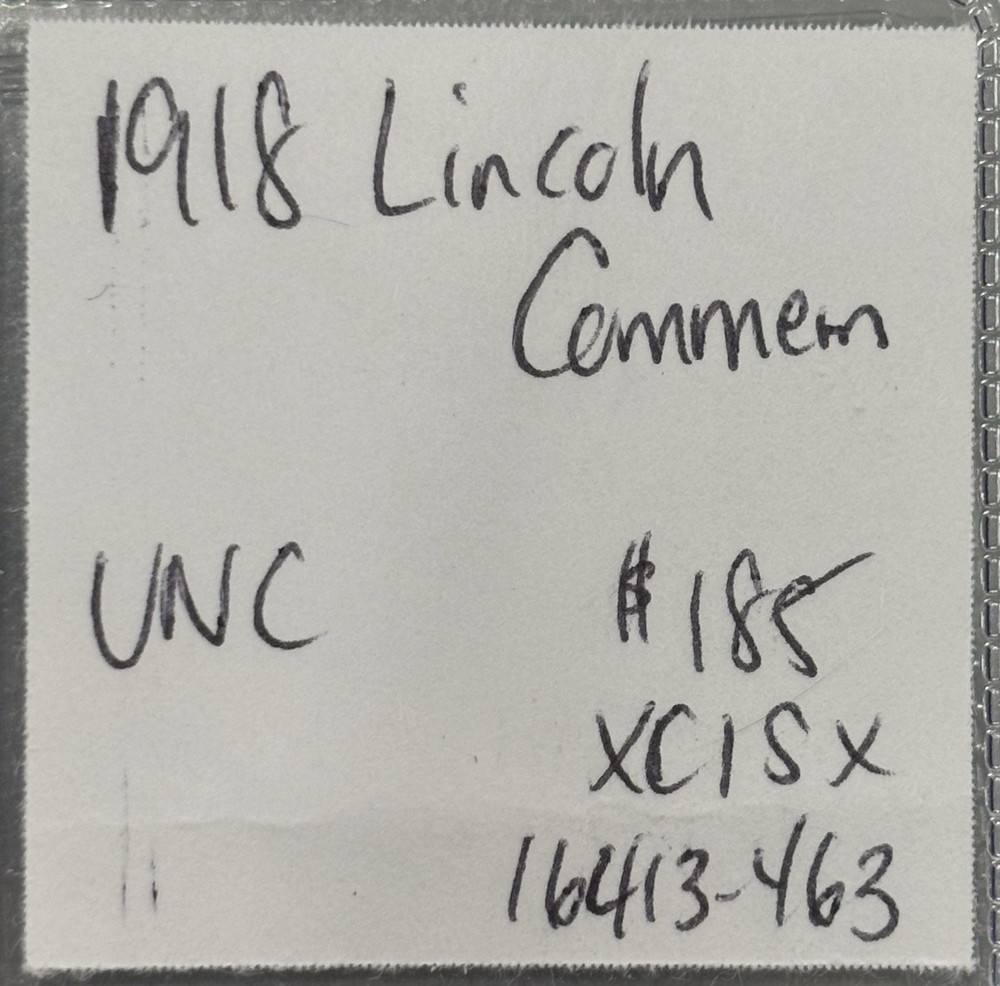 1918 Lincoln
Commem
UNC $185
XCISX
16413-463